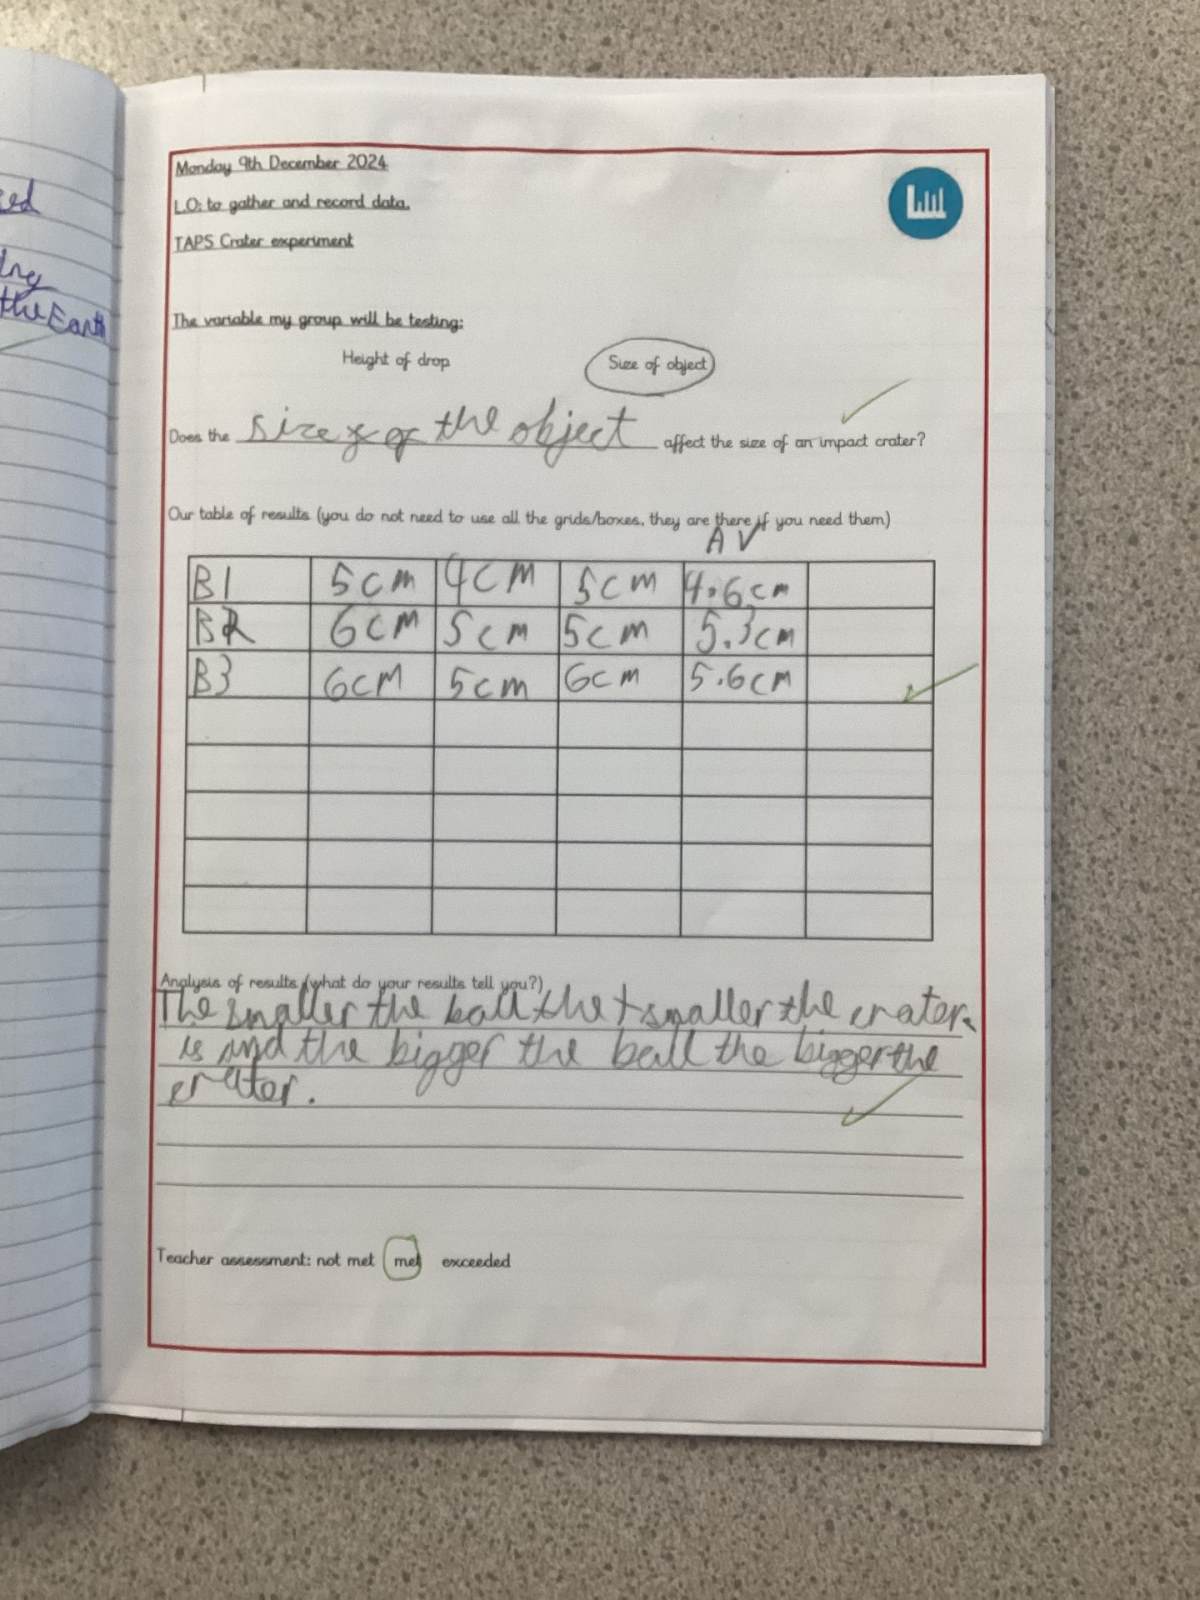 ced
ing
the Earth
Monday 9th December 2024
L.O: to gather and record data.
TAPS Crater experiment
The variable my group will be testing:
Height of drop Size of object
Does the size of the object affect the size of an impact crater?
Our table of results (you do not need to use all the grids/boxes, they are there if you need them)
AV
B1 5cm 4cm 5cm 4.6cm
B2 6cm 5cm 5cm 5.3cm
B3 6cm 5cm 6cm 5.6cm
Analysis of results (what do your results tell you?)
The smaller the ball the smaller the crater
is and the bigger the ball the bigger the
crater.
Teacher assessment: not met met exceeded